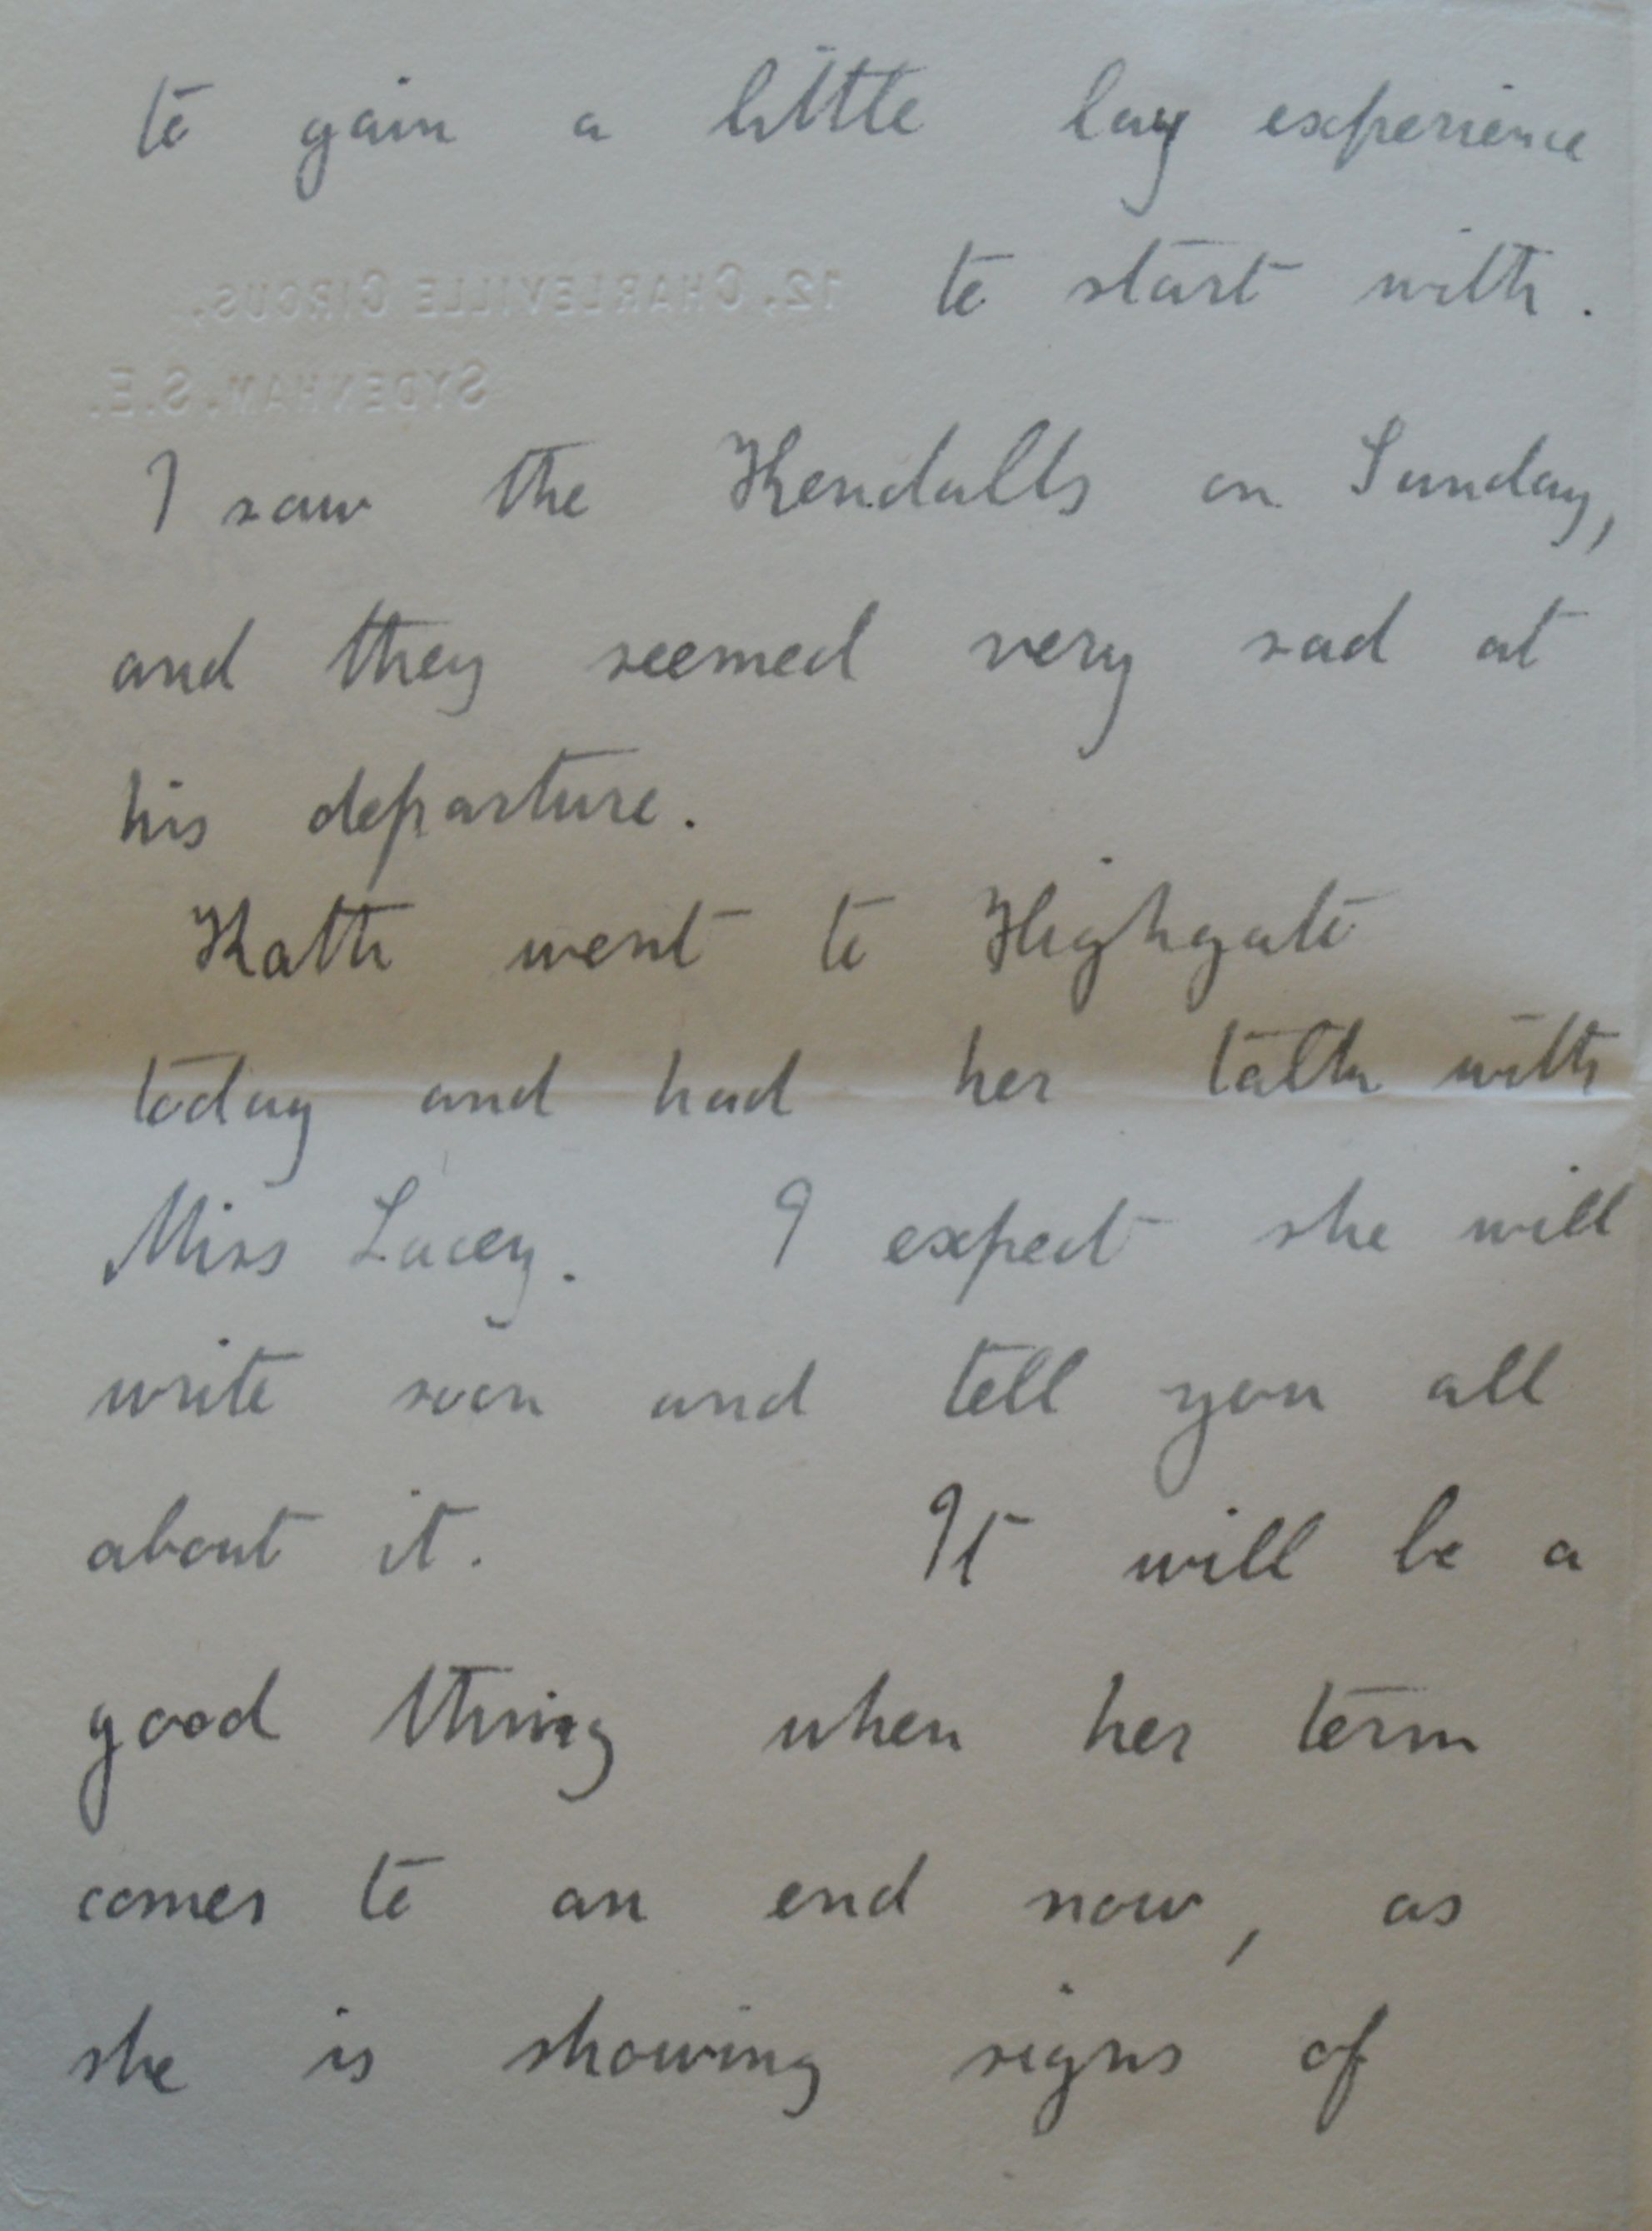 to gain a little lay experience
12, CHARLEVILLE CIRCUS, to start with.
SYDENHAM. S.E.
I saw the Kendalls on Sunday,
and they seemed very sad at
his departure.
Kath went to Highgate
today and had her talk with
Miss Lacey. I expect she will
write soon and tell you all
about it. It will be a
good thing when her term
comes to an end now, as
she is showing signs of